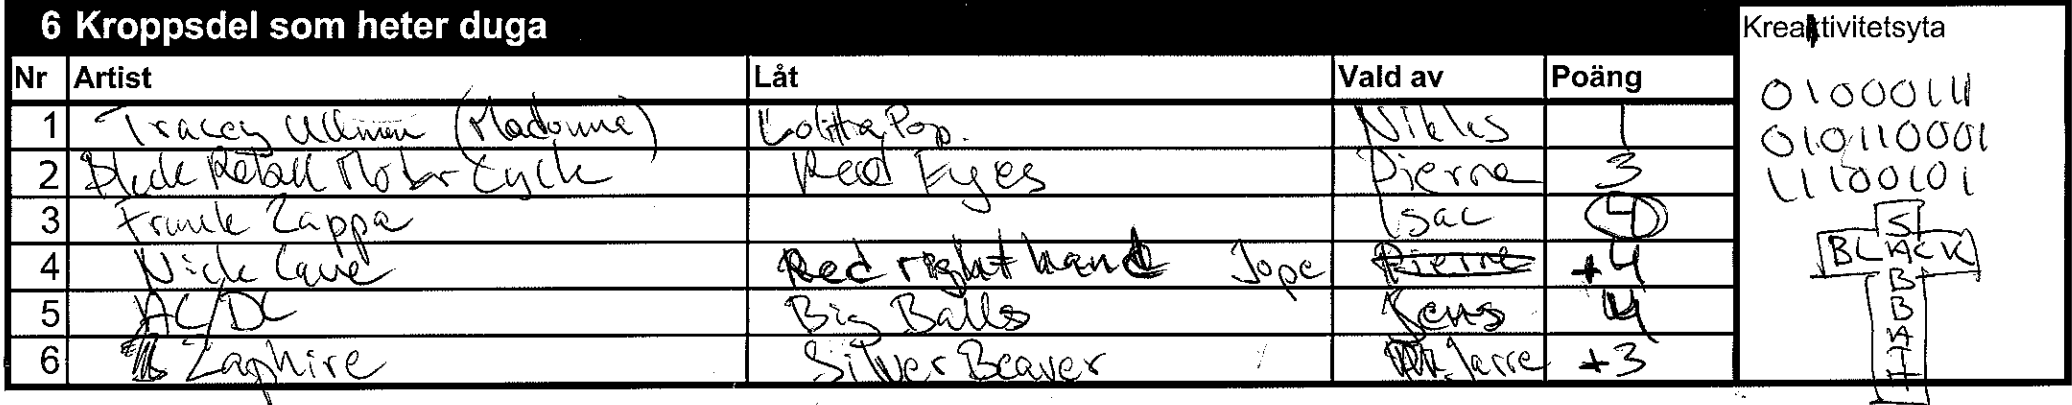 6 Kroppsdel som heter duga
Kreaktivitetsyta
Nr Artist Låt Vald av Poäng
1 Tracey Ullman (Madonna) Lolita Pop. Niklas 1
2 Motor Cycle Red Eyes Pierre 3
3 Frank Zappa Isac 4
4 Nick Cave Red right hand Jope Pierre +4
5 AC/DC Big Balls Jens 4
6 Zaphire Silver Beaver Jarre +3
01000111
010110001
11100101
S
BLACK
B
B
A
T
H